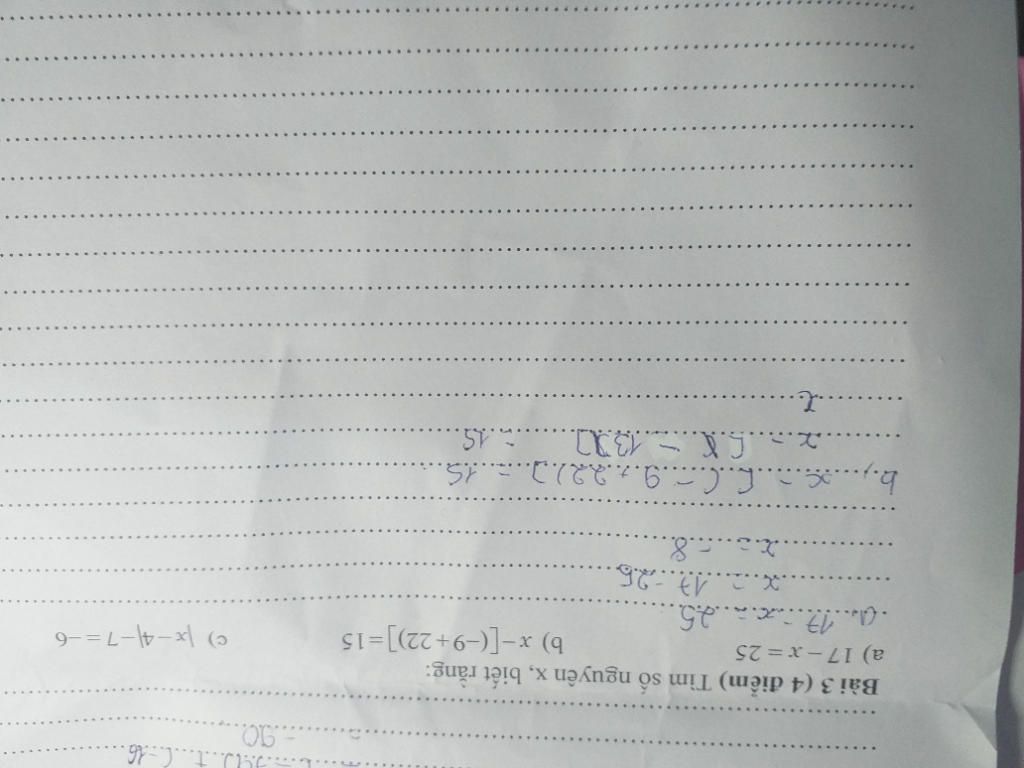 = 79(1) + (-16
= -90
Bài 3 (4 điểm) Tìm số nguyên x, biết rằng:
a) 17 − x = 25 b) x − [(−9 + 22)] = 15 c) |x − 4| − 7 = −6
a, 17 - x = 25
x = 17 - 25
x = -8
b, x - [(-9 + 22)] = 15
x - [ - 13 ] = 15
x